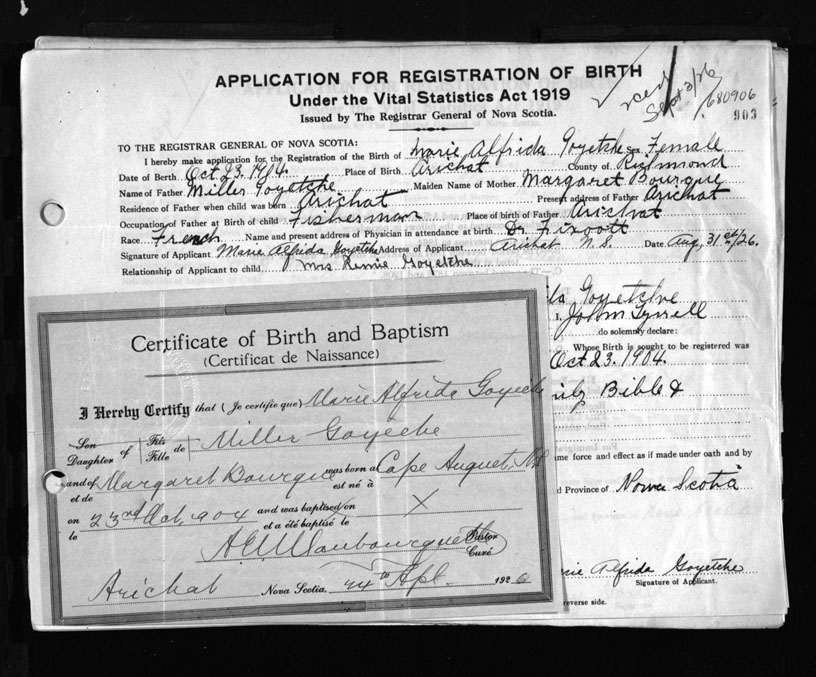 APPLICATION FOR REGISTRATION OF BIRTH
Under the Vital Statistics Act 1919
Issued by The Registrar General of Nova Scotia.
rced
Sept 3/26
680906
903
TO THE REGISTRAR GENERAL OF NOVA SCOTIA:
I hereby make application for the Registration of the Birth of Marie Alfrida Goyetche Sex Female
Date of Birth Oct 23. 1904. Place of Birth Arichat County of Richmond
Name of Father Miller Goyetche Maiden Name of Mother Margaret Bourque
Residence of Father when child was born Arichat Present address of Father Arichat
Occupation of Father at Birth of child Fisherman Place of birth of Father Arichat
Race French Name and present address of Physician in attendance at birth Dr.
Signature of Applicant Marie Alfrida Goyetche Address of Applicant Arichat N. S. Date Aug. 31st/26.
Relationship of Applicant to child Mrs Goyetche
da Goyetche
I, John Tyrell
do solemnly declare:
Whose Birth is sought to be registered was
Oct 23. 1904.
Bible &
me force and effect as if made under oath and by
d Province of Nova Scotia
rie Alfrida Goyetche
Signature of Applicant.
reverse side.
Certificate of Birth and Baptism
(Certificat de Naissance)
I Hereby Certify that (Je certifie que) Marie Alfrida Goyeche
Son Daughter of Fils Fille de Miller Goyeche
and of et de Margaret Bourque was born at est né à Cape Auguet, NS
on le 23rd Oct, 904 and was baptised on et a été baptisé le X
Pastor Curé
Arichat Nova Scotia, 24th Apl. 1926